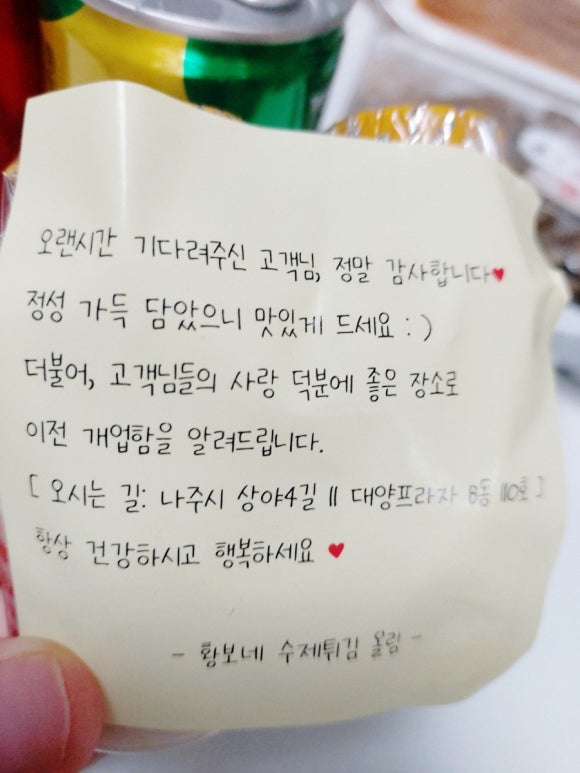 오랜시간 기다려주신 고객님, 정말 감사합니다♥
정성 가득 담았으니 맛있게 드세요 : )
더불어, 고객님들의 사랑 덕분에 좋은 장소로
이전 개업함을 알려드립니다.
[ 오시는 길: 나주시 상야4길 11 대양프라자 8동 110호 ]
항상 건강하시고 행복하세요 ♥
- 황보네 수제튀김 올림 -